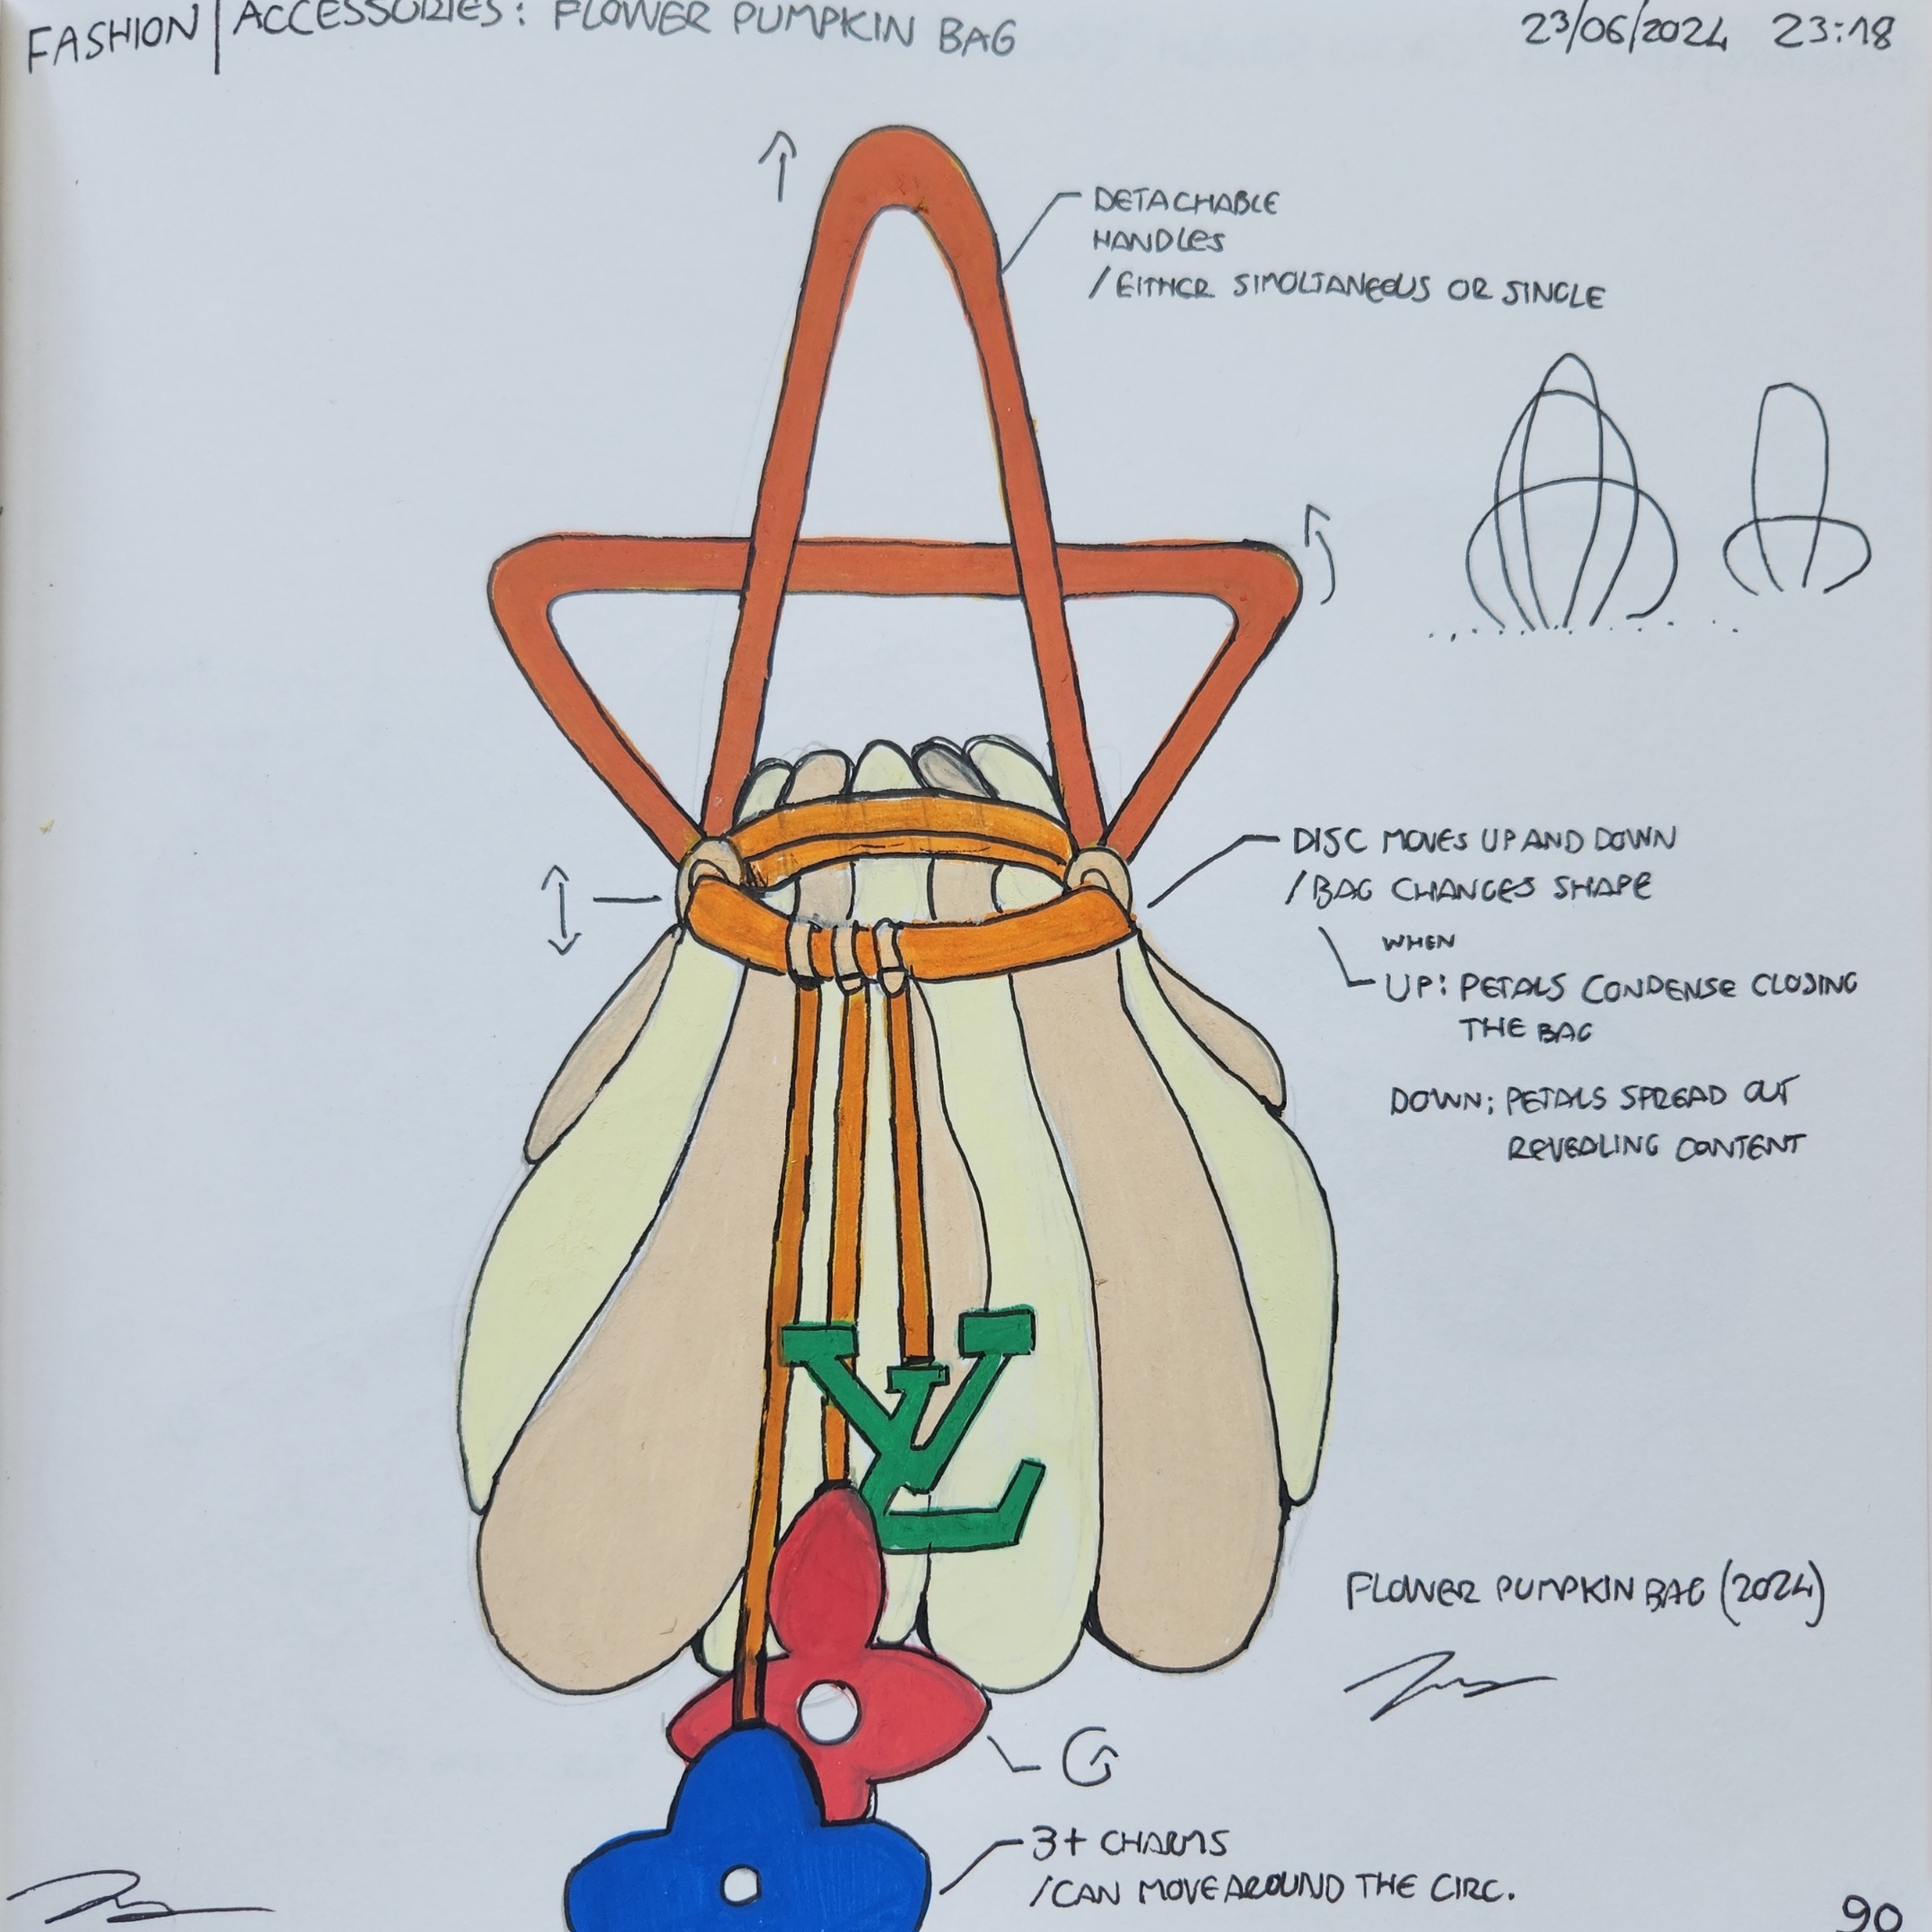 FASHION | ACCESSORIES: FLOWER PUMPKIN BAG
23/06/2024 23:18
DETACHABLE
HANDLES
/ EITHER SIMOLTANEOUS OR SINGLE
DISC MOVES UP AND DOWN
/ BAG CHANGES SHAPE
WHEN
UP: PETALS CONDENSE CLOSING
THE BAG
DOWN: PETALS SPREAD OUT
REVEALING CONTENT
LV
FLOWER PUMPKIN BAG (2024)
3+ CHARMS
/CAN MOVE AROUND THE CIRC.
90